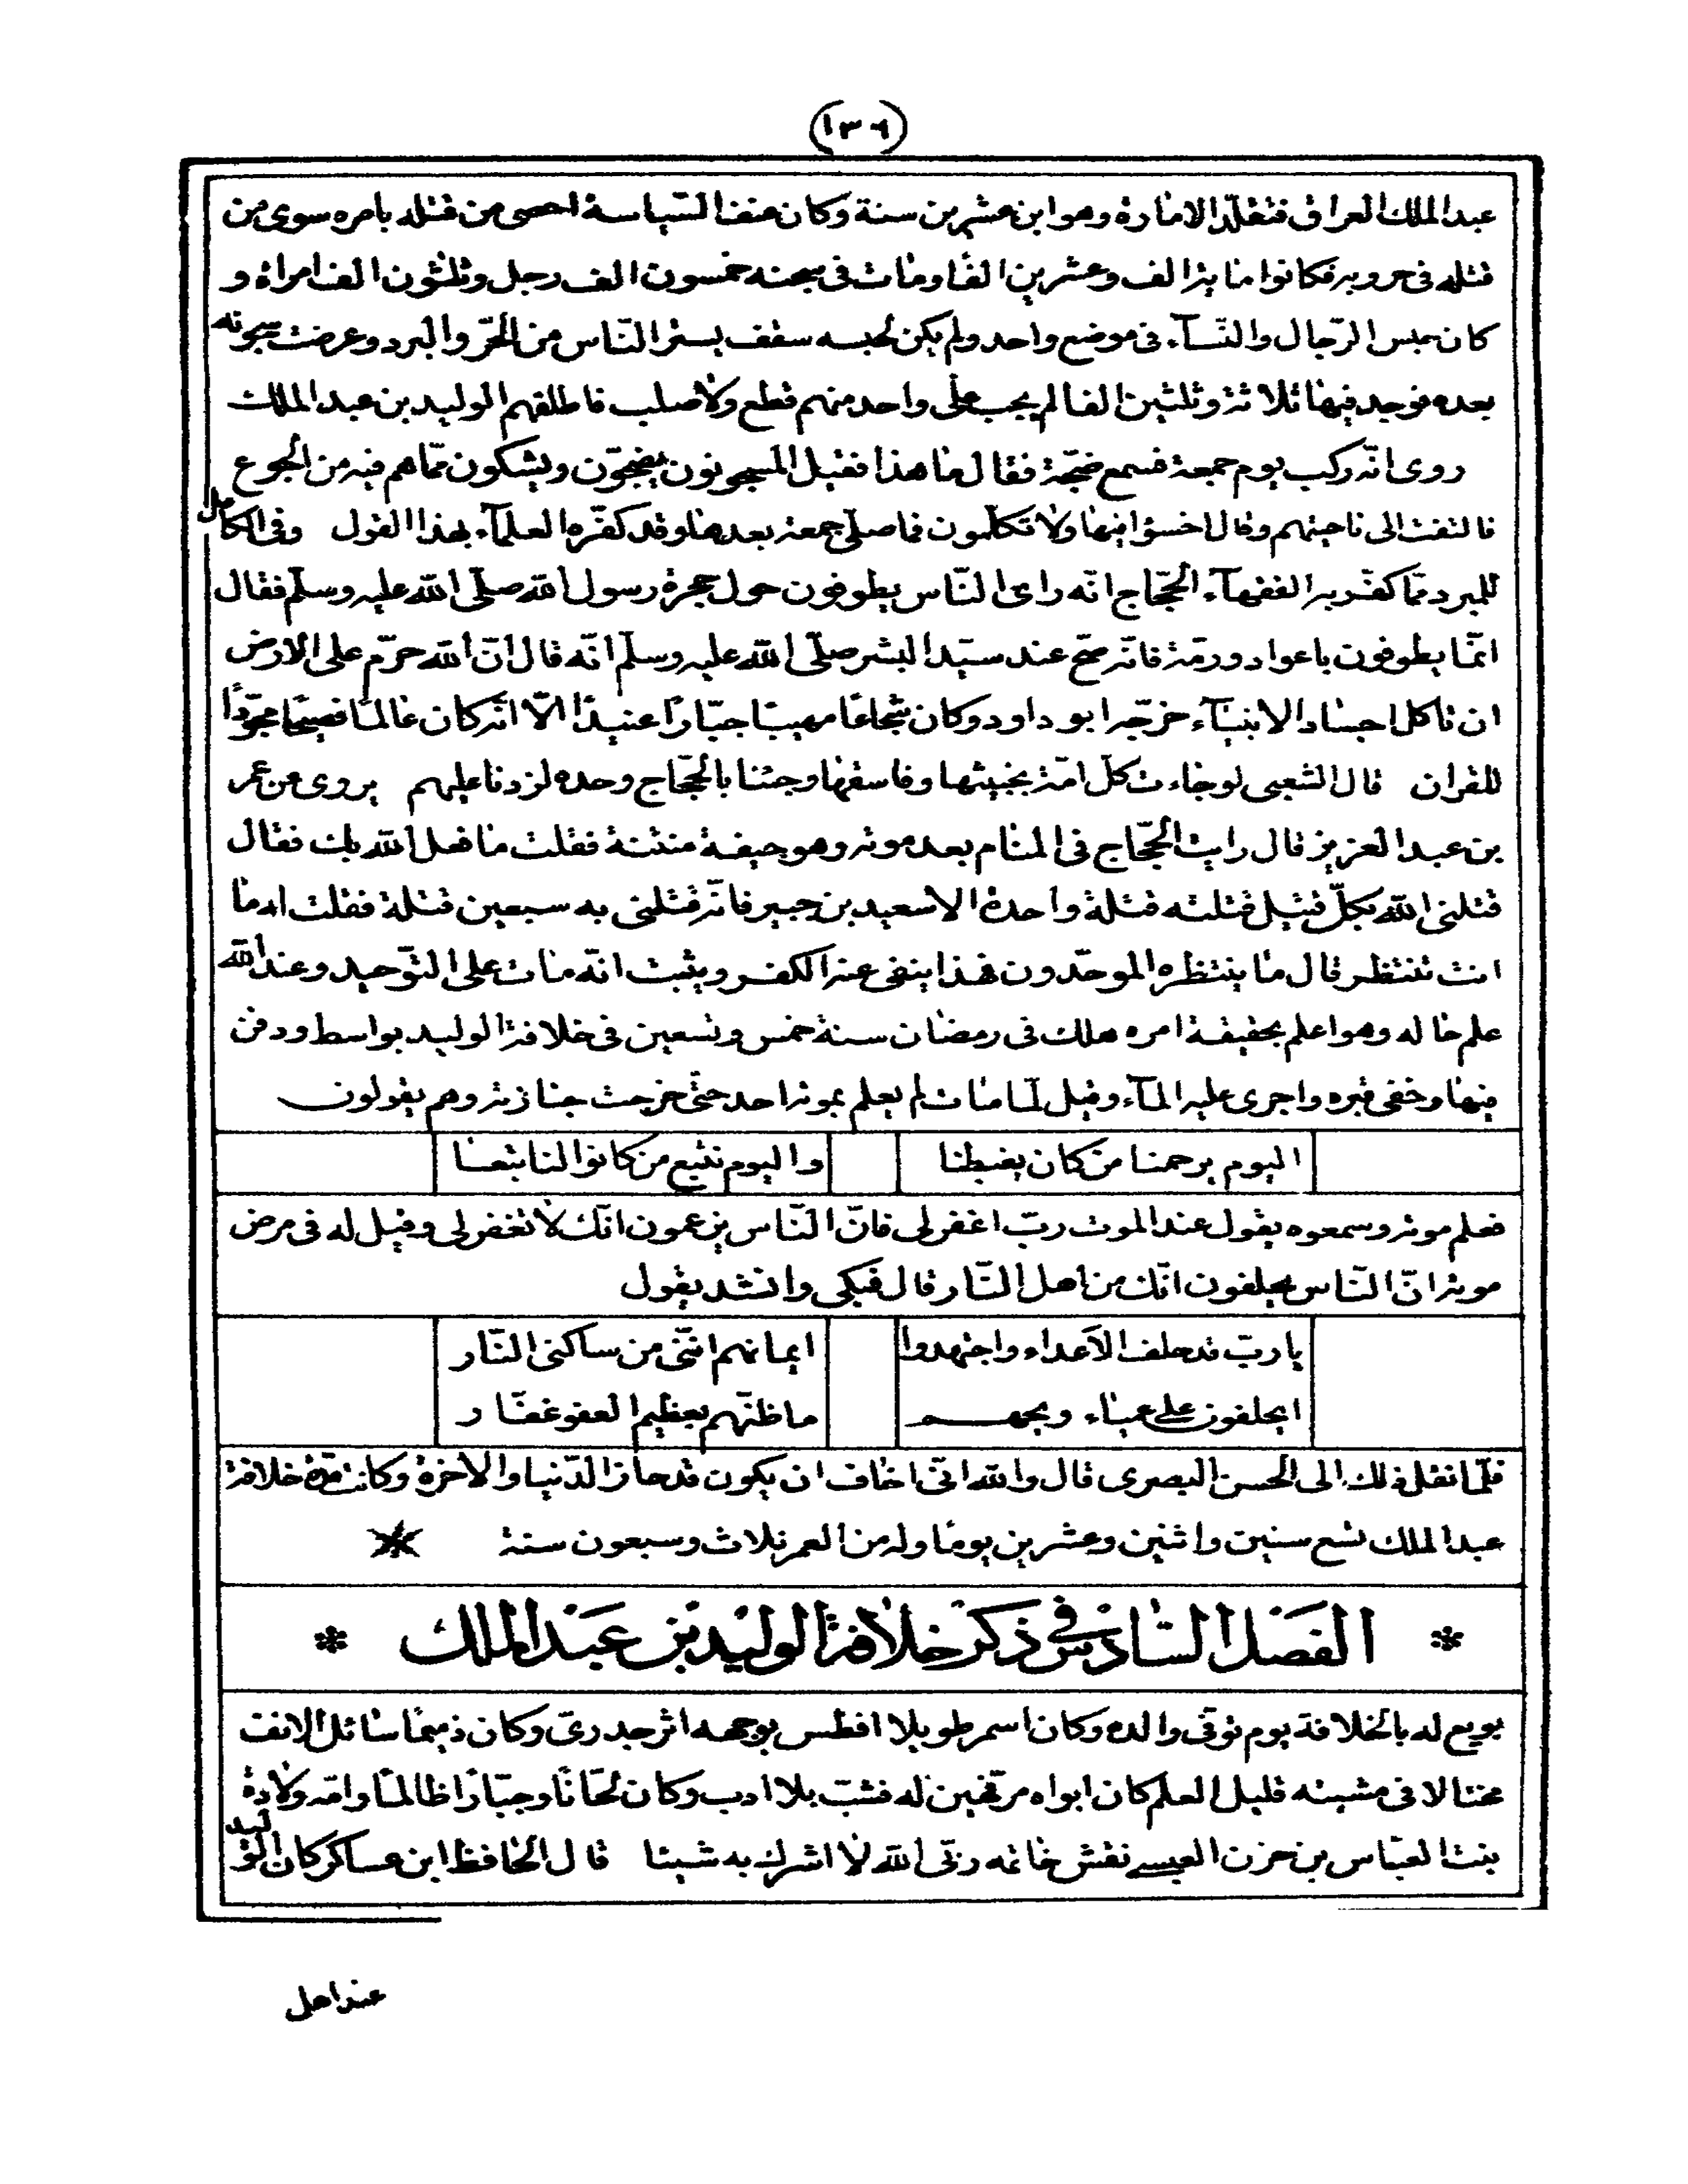 (١٣٦)
عبد الملك العراق فتقلّد الامارة وهو ابن عشرين سنة وكان عنف السّياسة احصى من قتله بامره سوى من
قتله فى حروبه فكانوا ماية الف وعشرين الفًا ومات فى سجنه خمسون الف رجل وثلثون الف امراة و
كان يحبس الرّجال والنّسآء فى موضع واحد ولم يكن لحبسه سقف يستر النّاس من الحرّ والبرد وعرضت سجونه
بعده فوجد فيها ثلاثة وثلثين الفا لم يجب على واحد منهم قطع ولا صلب فاطلقهم الوليد بن عبد الملك
روى انّه ركب يوم جمعة فسمع ضجّة فقال ما هذا فقيل المسجونون يضجّون ويشكون ممّا هم فيه من الجوع
فالتفت الى ناحيتهم وقال اخسؤا فيها ولا تكلّمون فما صلّى جمعة بعدها وقد كفّره العلمآء بهذا القول وفى الكامل
للمبرد ممّا كفّر به الفقهآء الحجّاج انّه راى النّاس يطوفون حول حجرة رسول الله صلّى الله عليه وسلّم فقال
انّما يطوفون باعواد ورمّة فانّه صحّ عند سيّد البشر صلّى الله عليه وسلّم انّه قال انّ الله حرّم على الارض
ان تاكل اجساد الانبيآء خرّجه ابو داود وكان شجاعًا مهيبًا جبّارًا عنيدًا الّا انّه كان عالمًا فصيحًا مجوّدًا
للقران قال الشعبى لو جاءت كلّ امّة بخبيثها وفاسقها وجئنا بالحجّاج وحده لزدنا عليهم يروى عن عمر
بن عبد العزيز قال رايت الحجّاج فى المنام بعد موته وهو جيفة منتنة فقلت ما فعل الله بك فقال
قتلنى الله بكلّ قتيل قتلته قتلة واحدة الا سعيد بن جبير فانّه قتلنى به سبعين قتلة فقلت له ما
انت تنتظر قال ما ينتظره الموحّدون فهذا ينفى عنه الكفر ويثبت انّه مات على التّوحيد وعند الله
علم حاله وهو اعلم بحقيقة امره هلك فى رمضان سنة خمس وتسعين فى خلافة الوليد بواسط ودفن
فيها وخفى قبره واجرى عليه المآء وقيل لمّا مات لم يعلم بموته احد حتّى خرجت جنازته وهم يقولون
اليوم يرحمنا من كان يغبطنا واليوم نتبع من كانوا لنا تبعا
فعلم موته وسمعوه يقول عند الموت ربّ اغفر لى فانّ النّاس يزعمون انّك لا تغفر لى وقيل له فى مرض
موته انّ النّاس يحلفون انّك من اهل النّار قال فبكى وانشد يقول
يا ربّ قد حلف الاعداء واجتهدوا ايمانهم انّنى من ساكنى النّار
ايحلفون على عمياء ويحهم ما ظنّهم بعظيم العفو غفّار
فلمّا نقل ذلك الى الحسن البصرى قال والله انّى اخاف ان يكون قد حاز الدّنيا والاخرة وكانت مدّة خلافة
عبد الملك تسع سنين واثنين وعشرين يومًا وله من العمر ثلاث وسبعون سنة
* الفصل السّادس فى ذكر خلافة الوليد بن عبد الملك *
بويع له بالخلافة يوم توفّى والده وكان اسمر طويلا افطس بوجهه اثر جدرىّ وكان ذميمًا سائل الانف
مختالا فى مشيته قليل العلم كان ابواه مرفّهين له فشبّ بلا ادب وكان لحّانًا وجبّارًا ظالمًا وامّه ولّادة
بنت العبّاس بن حزن العبسى نقش خاتمه ربّى الله لا اشرك به شيئا قال الحافظ ابن عساكر كان الوليد
عند اهل